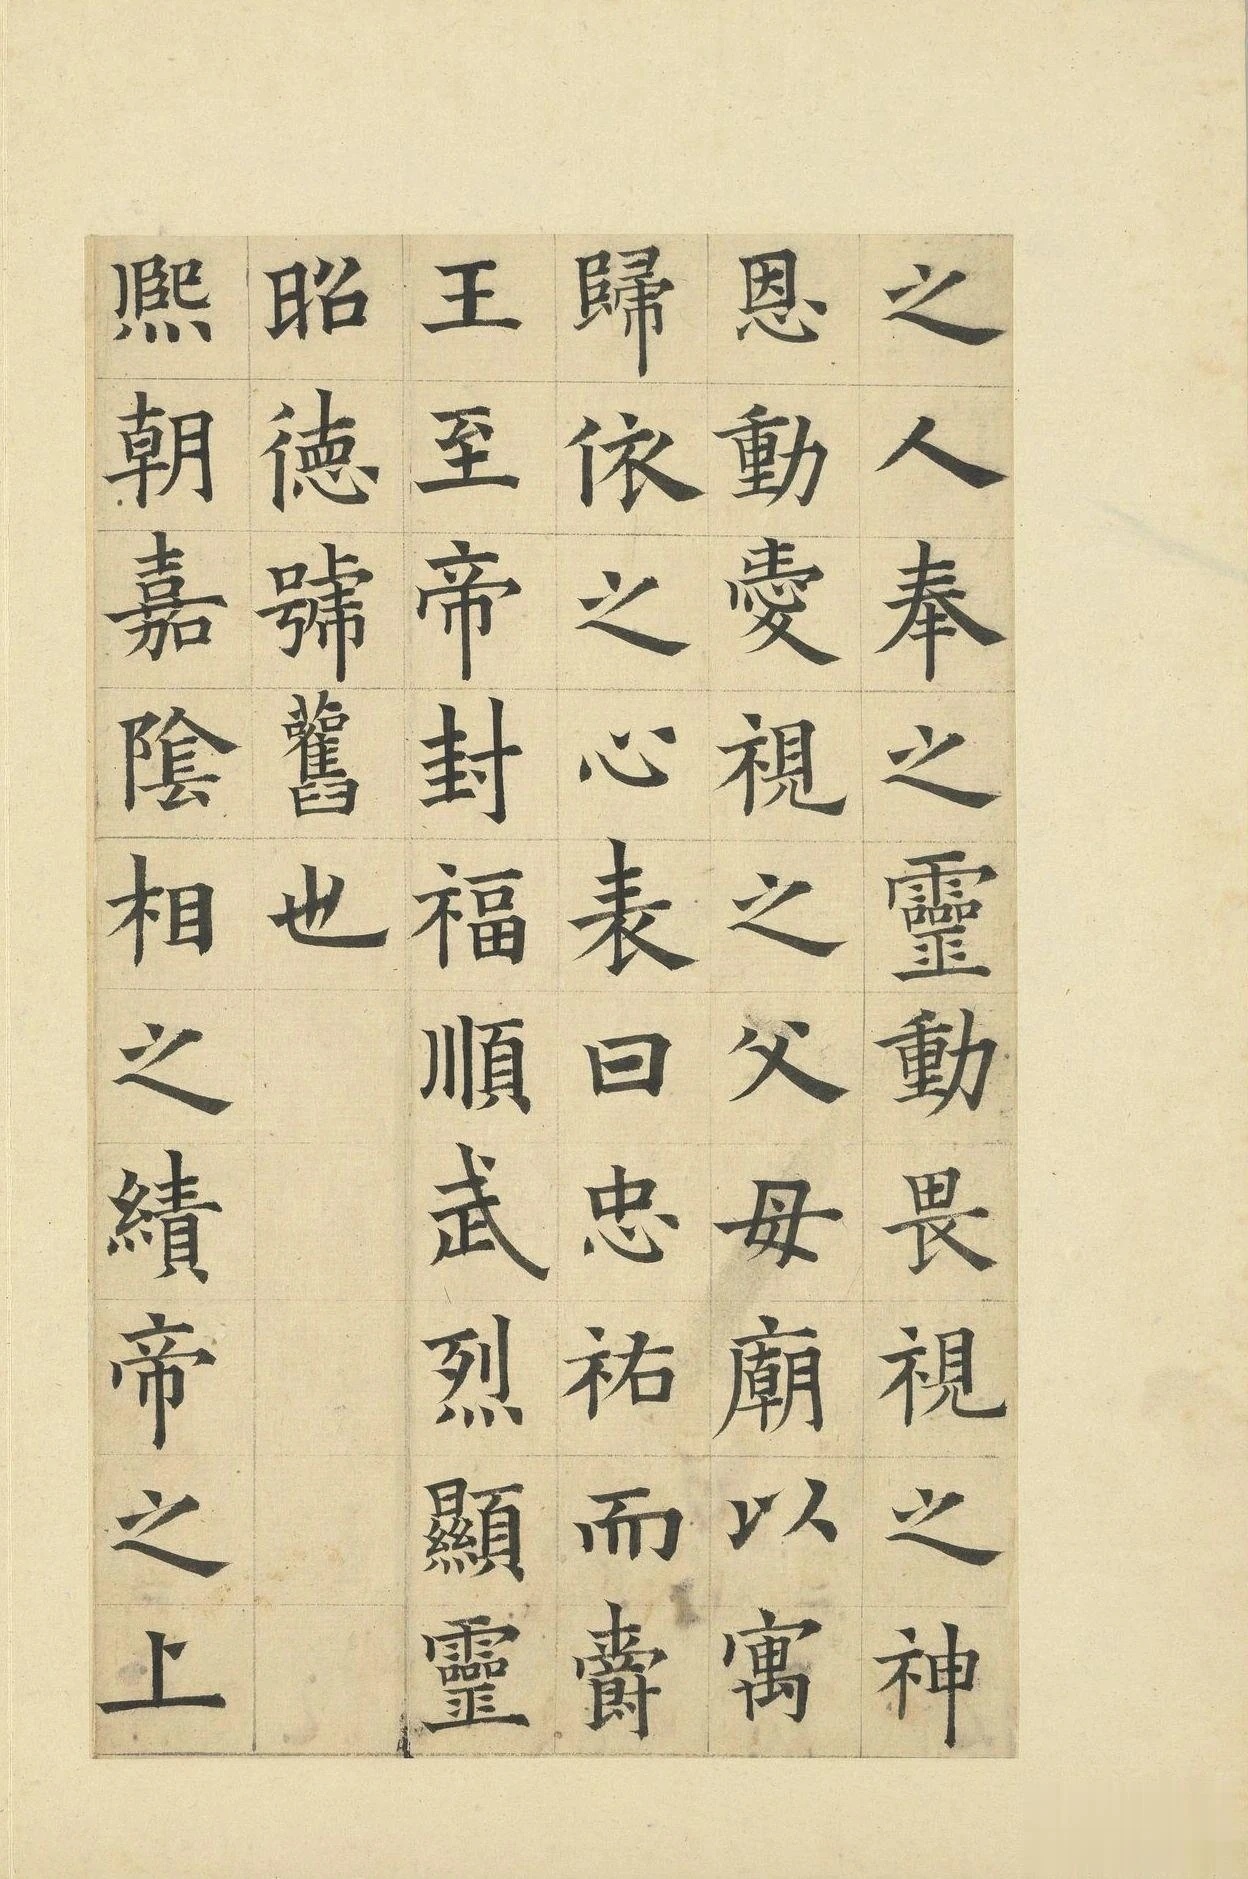 之人奉之靈動畏視之神
恩動愛視之父母廟以寓
歸依之心表曰忠祐而爵
王至帝封福順武烈顯靈
昭德號舊也
熙朝嘉隂相之績帝之上